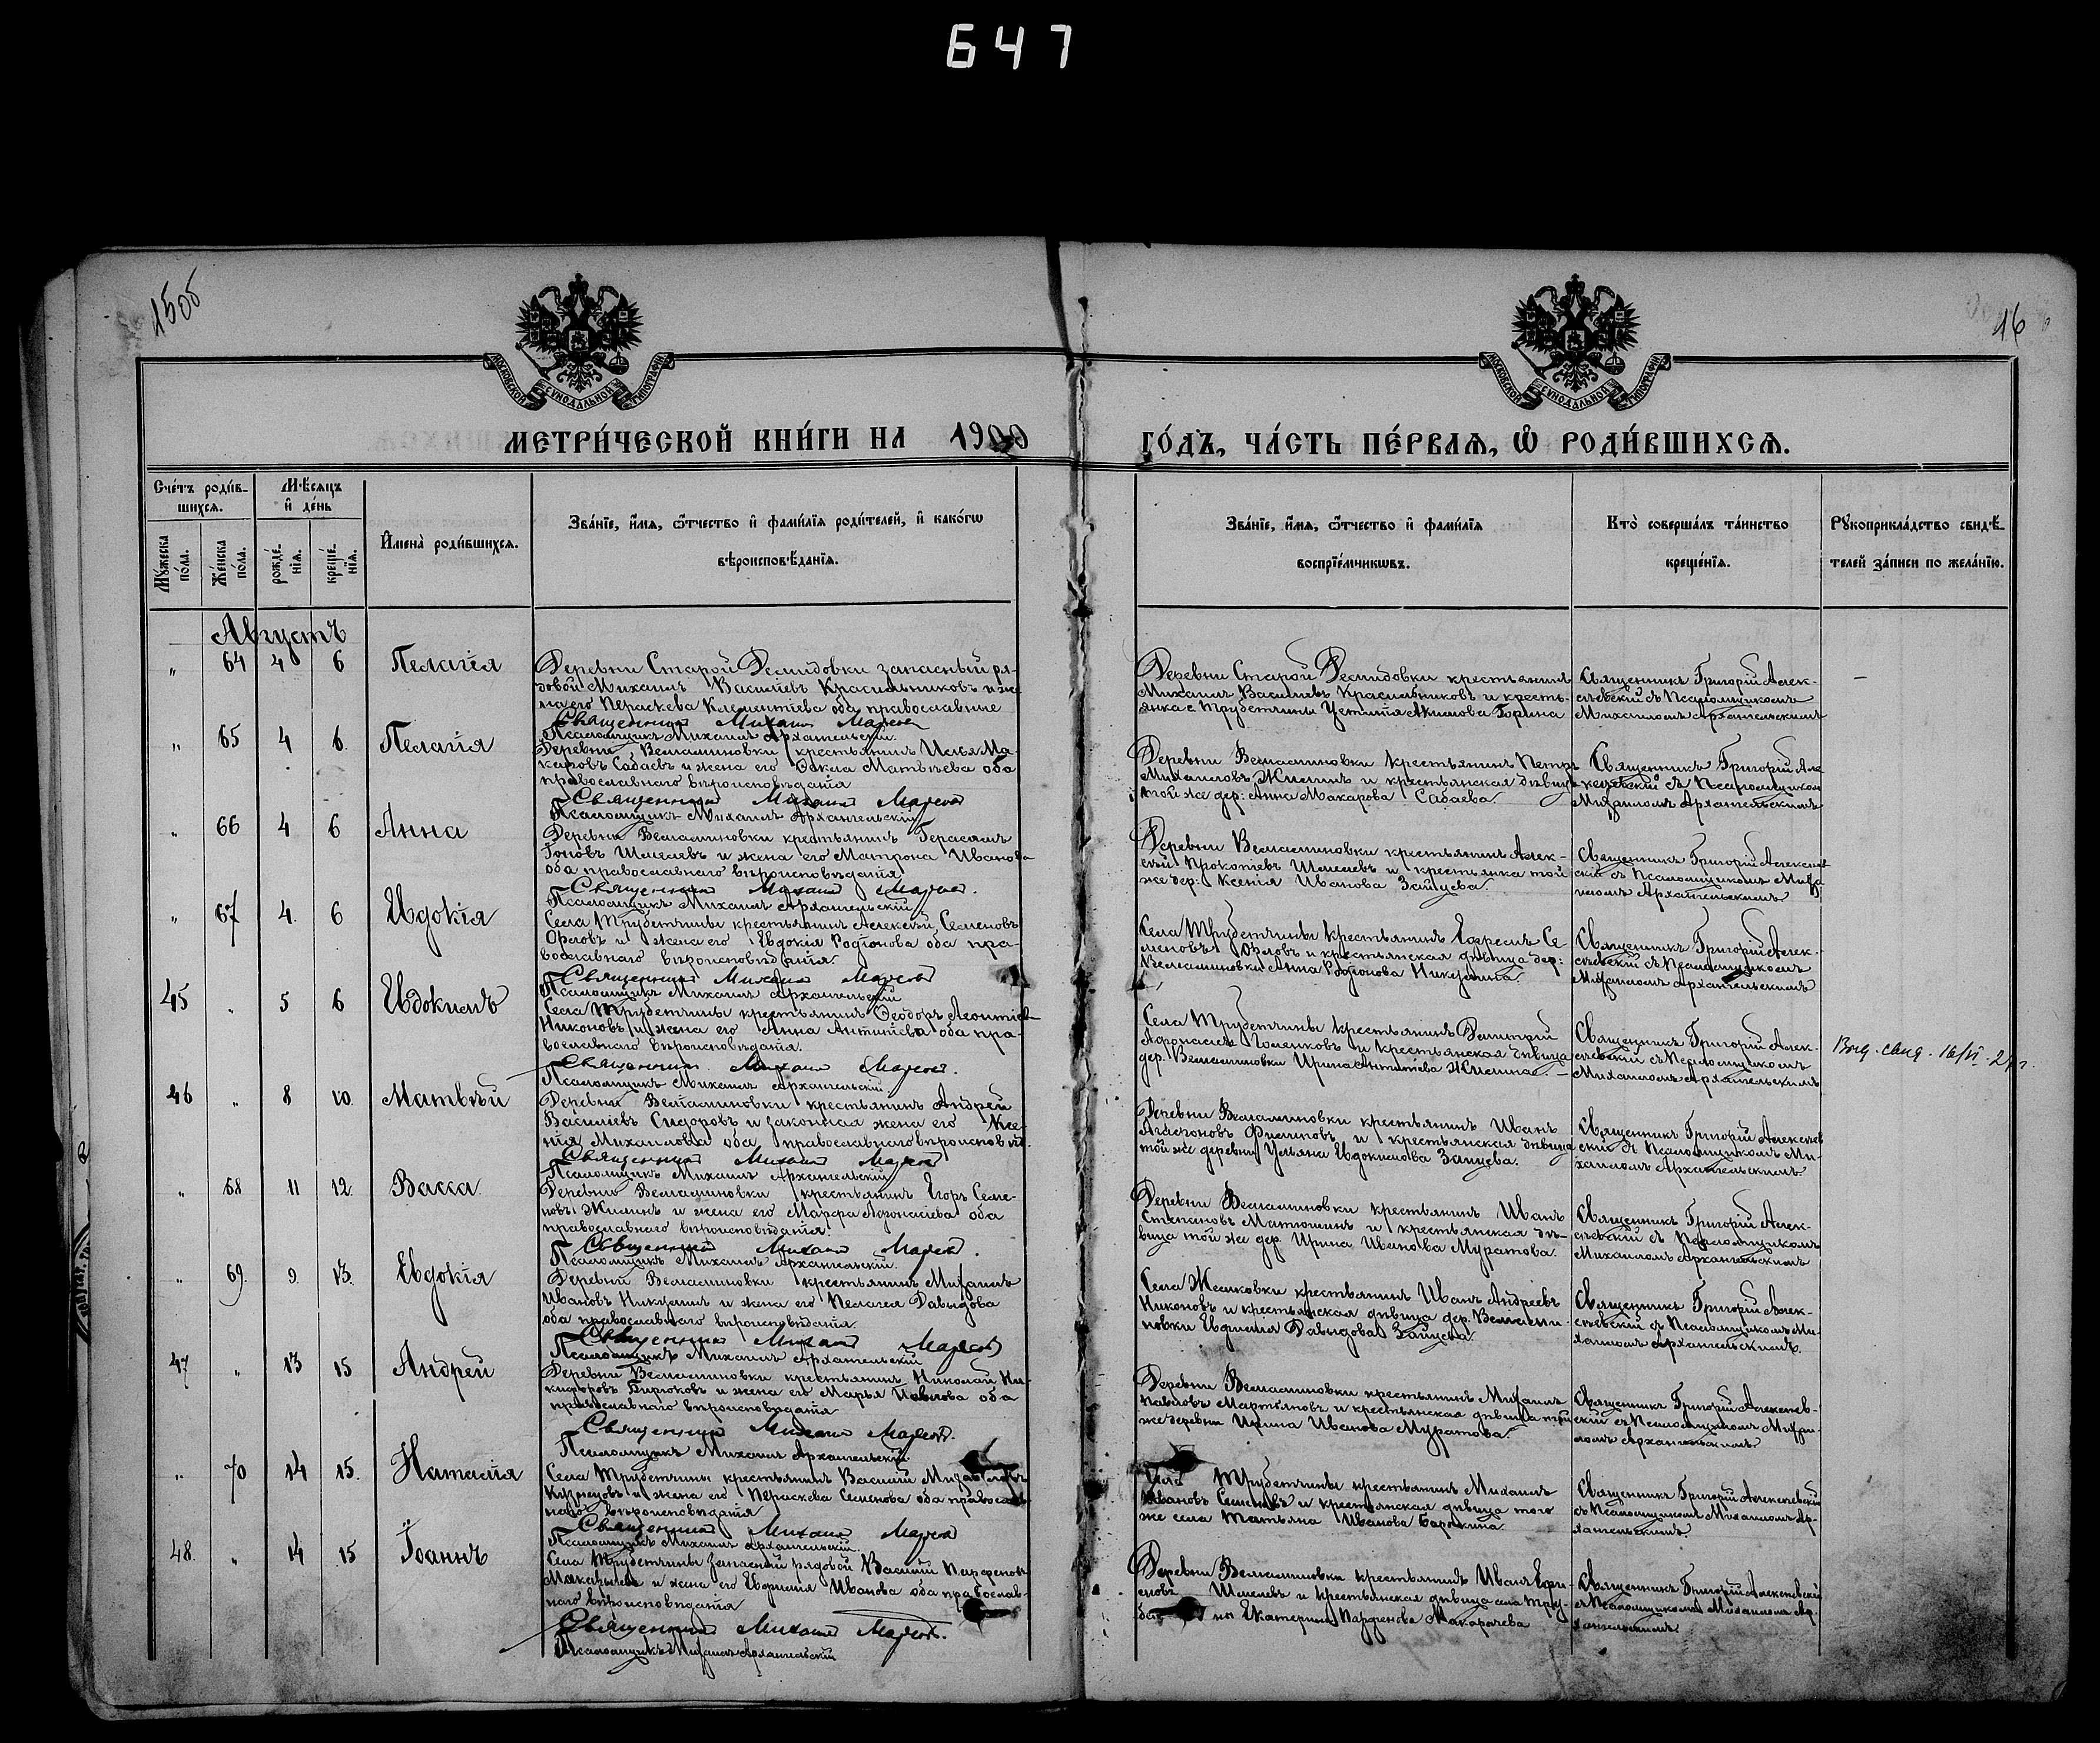 647
15об
16
МОСКОВСКОЙ СѴНОДАЛЬНОЙ ТИПОГРАФІИ
МОСКОВСКОЙ СѴНОДАЛЬНОЙ ТИПОГРАФІИ
МЕТРИ́ЧЕСКОЙ КНИ́ГИ НА 1900 ГО́ДЪ, ЧА́СТЬ ПЕ́РВАѦ, Ѡ҆ РОДИ́ВШИХСѦ.
Сче́тъ роди́вшихсѧ.
Мѣ́сѧцъ и҆ де́нь
Мꙋ́жеска по́ла.
Же́нска по́ла.
рожде́нїѧ.
креще́нїѧ.
И҆мена̀ роди́вшихсѧ.
Зва́нїе, и҆́мѧ, ѻ҆́тчество и҆ фами́лїѧ роди́телей, и҆ како́гѡ
вѣроисповѣ́данїѧ.
Зва́нїе, и҆́мѧ, ѻ҆́тчество и҆ фами́лїѧ
воспрїе́мникѡвъ.
Кто̀ соверша́лъ та́инство
креще́нїѧ.
Рꙋкоприкла́дство свидѣ́-
телей за́писи по жела́нїю.
Августъ
„ 64 4 6 Пелагія
Деревни Старой Демидовки запасный ря-
довой Михаилъ Василіевъ Красильниковъ и же-
на его Параскева Климентіева оба православные
Священникъ Михаилъ
Псаломщикъ Михаилъ Архангельскій.
Деревни Старой Демидовки крестьянинъ
Михаилъ Василіевъ Красильниковъ и кресть-
янка с Трубетчины Акимова Горина
Священникъ Григорій Алек-
сѣевскій съ Псаломщикомъ
Михаиломъ Архангельскимъ
„ 65 4 6. Пелагія
Деревни Вельяминовки крестьянинъ Илья Ма-
каровъ Сабаевъ и жена его Ѳекла Матвѣева оба
православнаго вѣроисповѣданія
Священникъ Михаилъ
Псаломщикъ Михаилъ Архангельскій
Деревни Вельяминовки крестьянинъ Петръ
Михаиловъ Жилинъ и крестьянская дѣвица
той же дер: Анна Макарова Сабаева.
Священникъ Григорій Але-
ксѣевскій съ Псаломщиком
Михаиломъ Архангельскимъ
„ 66 4 6 Анна
Деревни Вельяминовки крестьянинъ Герасимъ
Шмелевъ и жена его Матрона Иванова
оба православнаго вѣроисповѣданія
Священникъ Михаилъ
Псаломщикъ Михаилъ Архангельскій
Деревни Вельяминовки крестьянинъ Алек-
сѣй Прокопіевъ Шмелевъ и крестьянка той
же дер: Ксенія Иванова Зайцева.
Священникъ Григорій Алексѣев
скій съ Псаломщикомъ Миха
иломъ Архангельскимъ
„ 67 4. 6 Евдокія
Села Трубетчины крестьянинъ Алексѣй Семеновъ
Орловъ и жена его Евдокія Родіонова оба пра-
вославнаго вѣроисповѣданія.
Священникъ Михаилъ
Псаломщикъ Михаилъ Архангельскій
Села Трубетчины крестьянинъ Ефремъ Се-
меновъ Орловъ и крестьянская дѣвица дер:
Вельяминовки Анна Родіонова Никулина.
Священникъ Григорій Алек-
сѣевскій съ Псаломщикомъ
Михаиломъ Архангельскимъ
45 „ 5 6 Евдокимъ
Села Трубетчины крестьянинъ Ѳеодоръ Леонтіев
Никоновъ и жена его Анна Антипіева оба пра-
вославнаго вѣроисповѣданія.
Священникъ Михаилъ
Псаломщикъ Михаилъ Архангельскій
Села Трубетчины крестьянинъ Димитрій
Афонасіевъ Голенковъ и крестьянская дѣвица
дер. Вельяминовки Ирина Антипова Жилина. –
Священникъ Григорій Алек-
сѣевскій съ Псаломщикомъ
Михаиломъ Архангельскимъ
Выд. свид. 16/VI 24 г.
46 „ 8 10. Матвѣй
Деревни Вельяминовки крестьянинъ Андрей
Василіевъ Сидоровъ и законная жена его Ксе-
нія Михаилова оба православнаго вѣроисповѣд.
Священникъ Михаилъ
Псаломщикъ Михаилъ Архангельскій
Деревни Вельяминовки крестьянинъ Иванъ
Филиповъ и крестьянская дѣвица
той же деревни Ульяна Евдокимова Зайцева.
Священникъ Григорій Алексѣев
скій съ Псаломщикомъ Ми-
хаиломъ Архангельскимъ.
„ 68 11 12. Васса.
Деревни Вельяминовки крестьянинъ Егоръ Семе-
новъ Жилинъ и жена его Марфа Афонасіева оба
православнаго вѣроисповѣданія.
Священникъ Михаилъ
Псаломщикъ Михаилъ Архангельскій.
Деревни Вельяминовки крестьянинъ Иванъ
Степановъ Матюшинъ и крестьянская дѣ-
вица той же дер. Ирина Иванова Муратова.
Священникъ Григорій Алек-
сѣевскій съ Псаломщикомъ
Михаиломъ Архангельскимъ
„ 69. 9. 13. Евдокія
Деревни Вельяминовки крестьянинъ Михаилъ
Ивановъ Никулинъ и жена его Пелагея Давыдова
оба православнаго вѣроисповѣданія.
Священникъ Михаилъ
Псаломщикъ Михаилъ Архангельскій
Села крестьянинъ Иванъ Андреевъ
Никоновъ и крестьянская дѣвица дер. Вельями-
новки Евфимія Давыдова Зайцева.
Священникъ Григорій Алек-
сѣевскій съ Псаломщикомъ Ми-
хаиломъ Архангельскимъ.
47 „ 13 15 Андрей
Деревни Вельяминовки крестьянинъ Николай Ни-
кифоровъ Бирюковъ и жена его Марья Павлова оба
православнаго вѣроисповѣданія
Священникъ Михаилъ
Псаломщикъ Михаилъ Архангельскій.
Деревни Вельяминовки крестьянинъ Михаилъ
Павловъ Мартыновъ и крестьянская дѣвица той
же деревни Ирина Иванова Муратова.
Священникъ Григорій Алексѣев-
скій съ Псаломщикомъ Михаи-
ломъ Архангельскимъ
„ 70 14 15. Наталія
Села Трубетчины крестьянинъ Василій Михаиловъ
Кузнецовъ и жена его Параскева Семенова оба православ-
наго вѣроисповѣданія
Священникъ Михаилъ
Псаломщикъ Михаилъ Архангельскій.
Села Трубетчины крестьянинъ Михаилъ
Ивановъ Семеновъ и крестьянская дѣвица того
же села Татьяна Иванова
Священникъ Григорій Алексѣевскій
съ Псаломщикомъ Михаиломъ Ар-
хангельскимъ.
48. „ 14 15 Іоаннъ
Села Трубетчины запасный рядовой Василій Парфенов
и жена его Евфимія Иванова оба православ-
наго вѣроисповѣданія
Священникъ Михаилъ
Псаломщикъ Михаилъ Архангельскій
Деревни Вельяминовки крестьянинъ Иванъ
Шмелевъ и крестьянская дѣвица села Тру-
Екатерина Парфенова Макарычева
Священникъ Григорій Алексѣевскій
съ Псаломщикомъ Михаиломъ Ар-
хангельскимъ